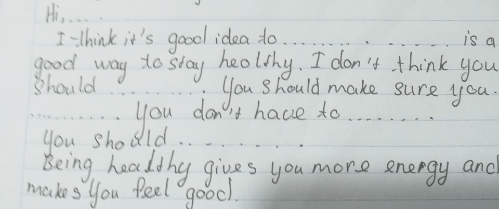 Hi,....
I think it's good idea to........ . ....... is a
good way to stay heolthy. I don't think you
should .......... You should make sure you.
.......... You don't have to ........
you should ..........
Being healthy gives you more energy and
makes you feel good.